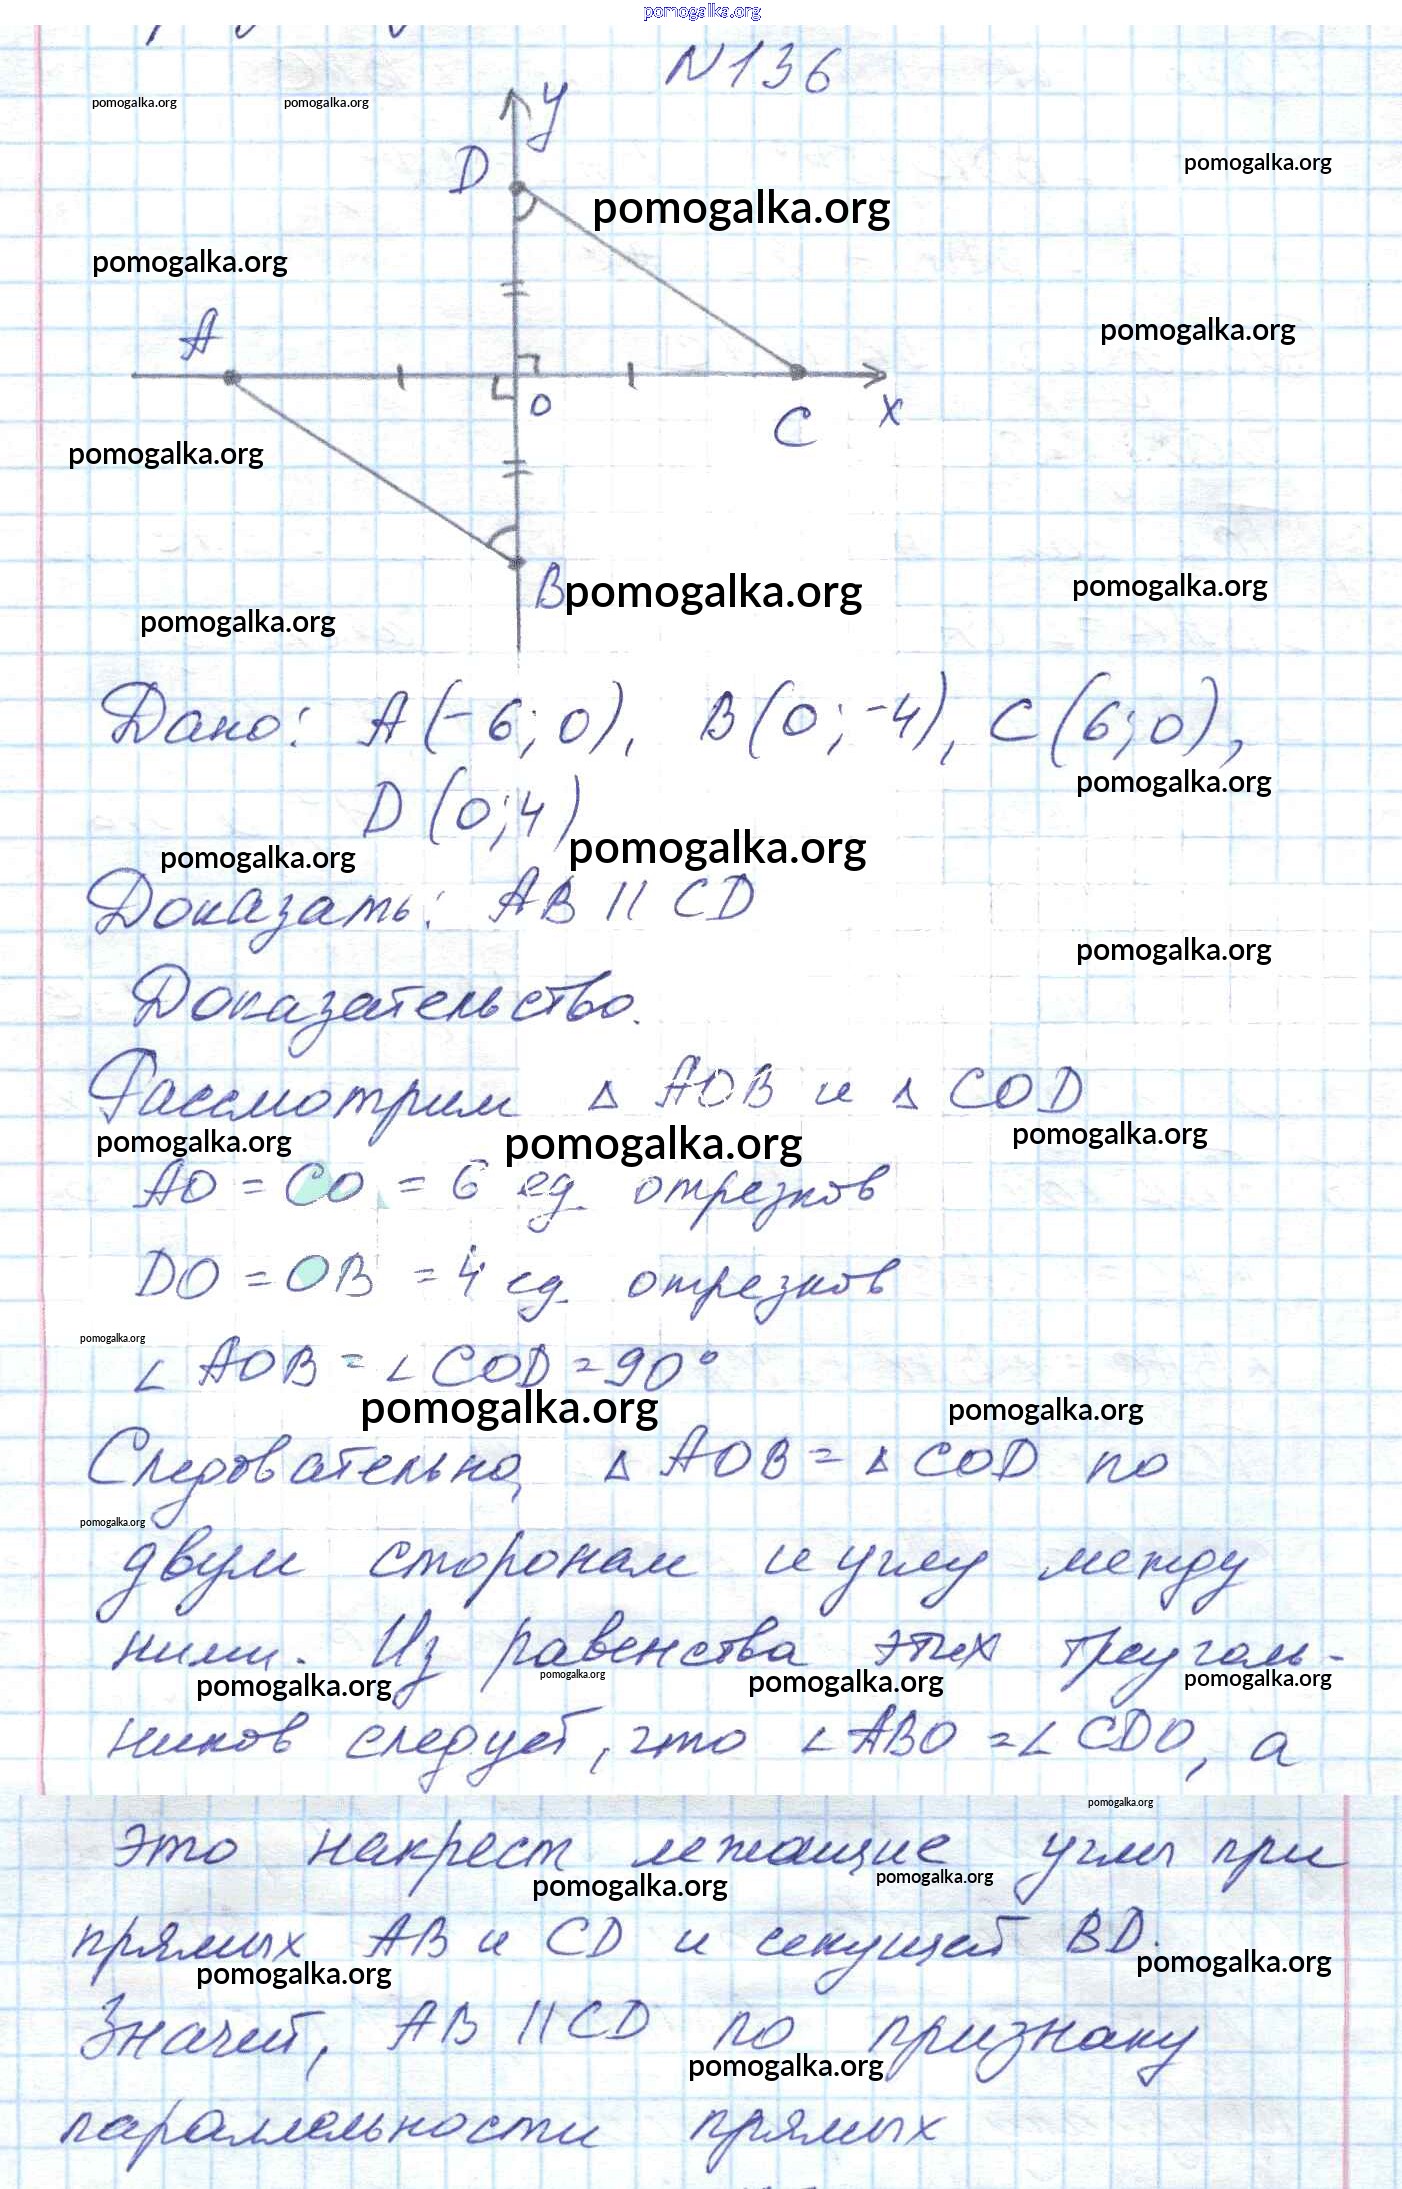 pomogalka.org
N136
pomogalka.org pomogalka.org
y
D
pomogalka.org
pomogalka.org
pomogalka.org
A
pomogalka.org
O
C x
pomogalka.org
B pomogalka.org
pomogalka.org
pomogalka.org
Дано: A(-6;0), B(0;-4), C(6;0),
pomogalka.org
D(0;4)
pomogalka.org
pomogalka.org
Доказать: AB || CD
pomogalka.org
Доказательство.
Рассмотрим Δ AOB и Δ COD
pomogalka.org pomogalka.org pomogalka.org
AO = CO = 6 ед. отрезков
DO = OB = 4 ед. отрезков
pomogalka.org
∠ AOB = ∠ COD = 90°
pomogalka.org pomogalka.org
Следовательно, Δ AOB = Δ COD по
pomogalka.org
двум сторонам и углу между
ними. Из равенства этих треуголь-
pomogalka.org pomogalka.org pomogalka.org pomogalka.org
ников следует, что ∠ABO = ∠CDO, а
pomogalka.org
это накрест лежащие углы при
pomogalka.org pomogalka.org
прямых AB и CD и секущей BD.
pomogalka.org pomogalka.org
Значит, AB || CD по признаку
pomogalka.org
параллельности прямых